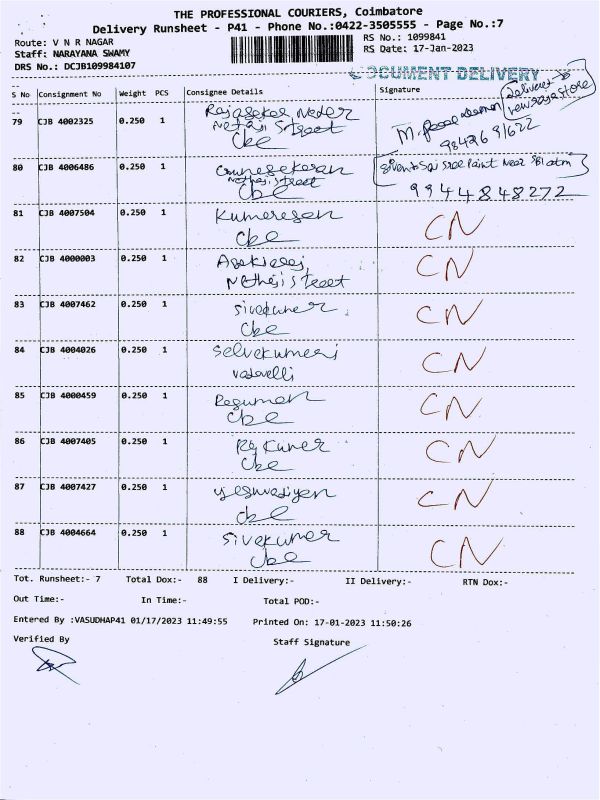 THE PROFESSIONAL COURIERS, Coimbatore
Delivery Runsheet - P41 - Phone No.:0422-3505555 - Page No.:7
Route: V N R NAGAR
RS No.: 1099841
Staff: NARAYANA SWAMY
RS Date: 17-Jan-2023
DRS No.: DCJB109984107
DOCUMENT DELIVERY
S No Consignment No Weight PCS Consignee Details Signature
79 CJB 4002325 0.250 1
Street
Cbe
9842691622
80 CJB 4006486 0.250 1
Street
Cbe
9944848272
81 CJB 4007504 0.250 1 Kumeresen CN
Cbe
82 CJB 4000003 0.250 1 CN
Nethaji Street
83 CJB 4007462 0.250 1 Sivekumer CN
Cbe
84 CJB 4004026 0.250 1 CN
vadavelli
85 CJB 4000459 0.250 1 CN
Cbe
86 CJB 4007405 0.250 1 Kumer CN
Cbe
87 CJB 4007427 0.250 1 CN
Cbe
88 CJB 4004664 0.250 1 Sivekumer CN
Cbe
Tot. Runsheet:- 7 Total Dox:- 88 I Delivery:- II Delivery:- RTN Dox:-
Out Time:- In Time:- Total POD:-
Entered By :VASUDHAP41 01/17/2023 11:49:55 Printed On: 17-01-2023 11:50:26
Verified By Staff Signature